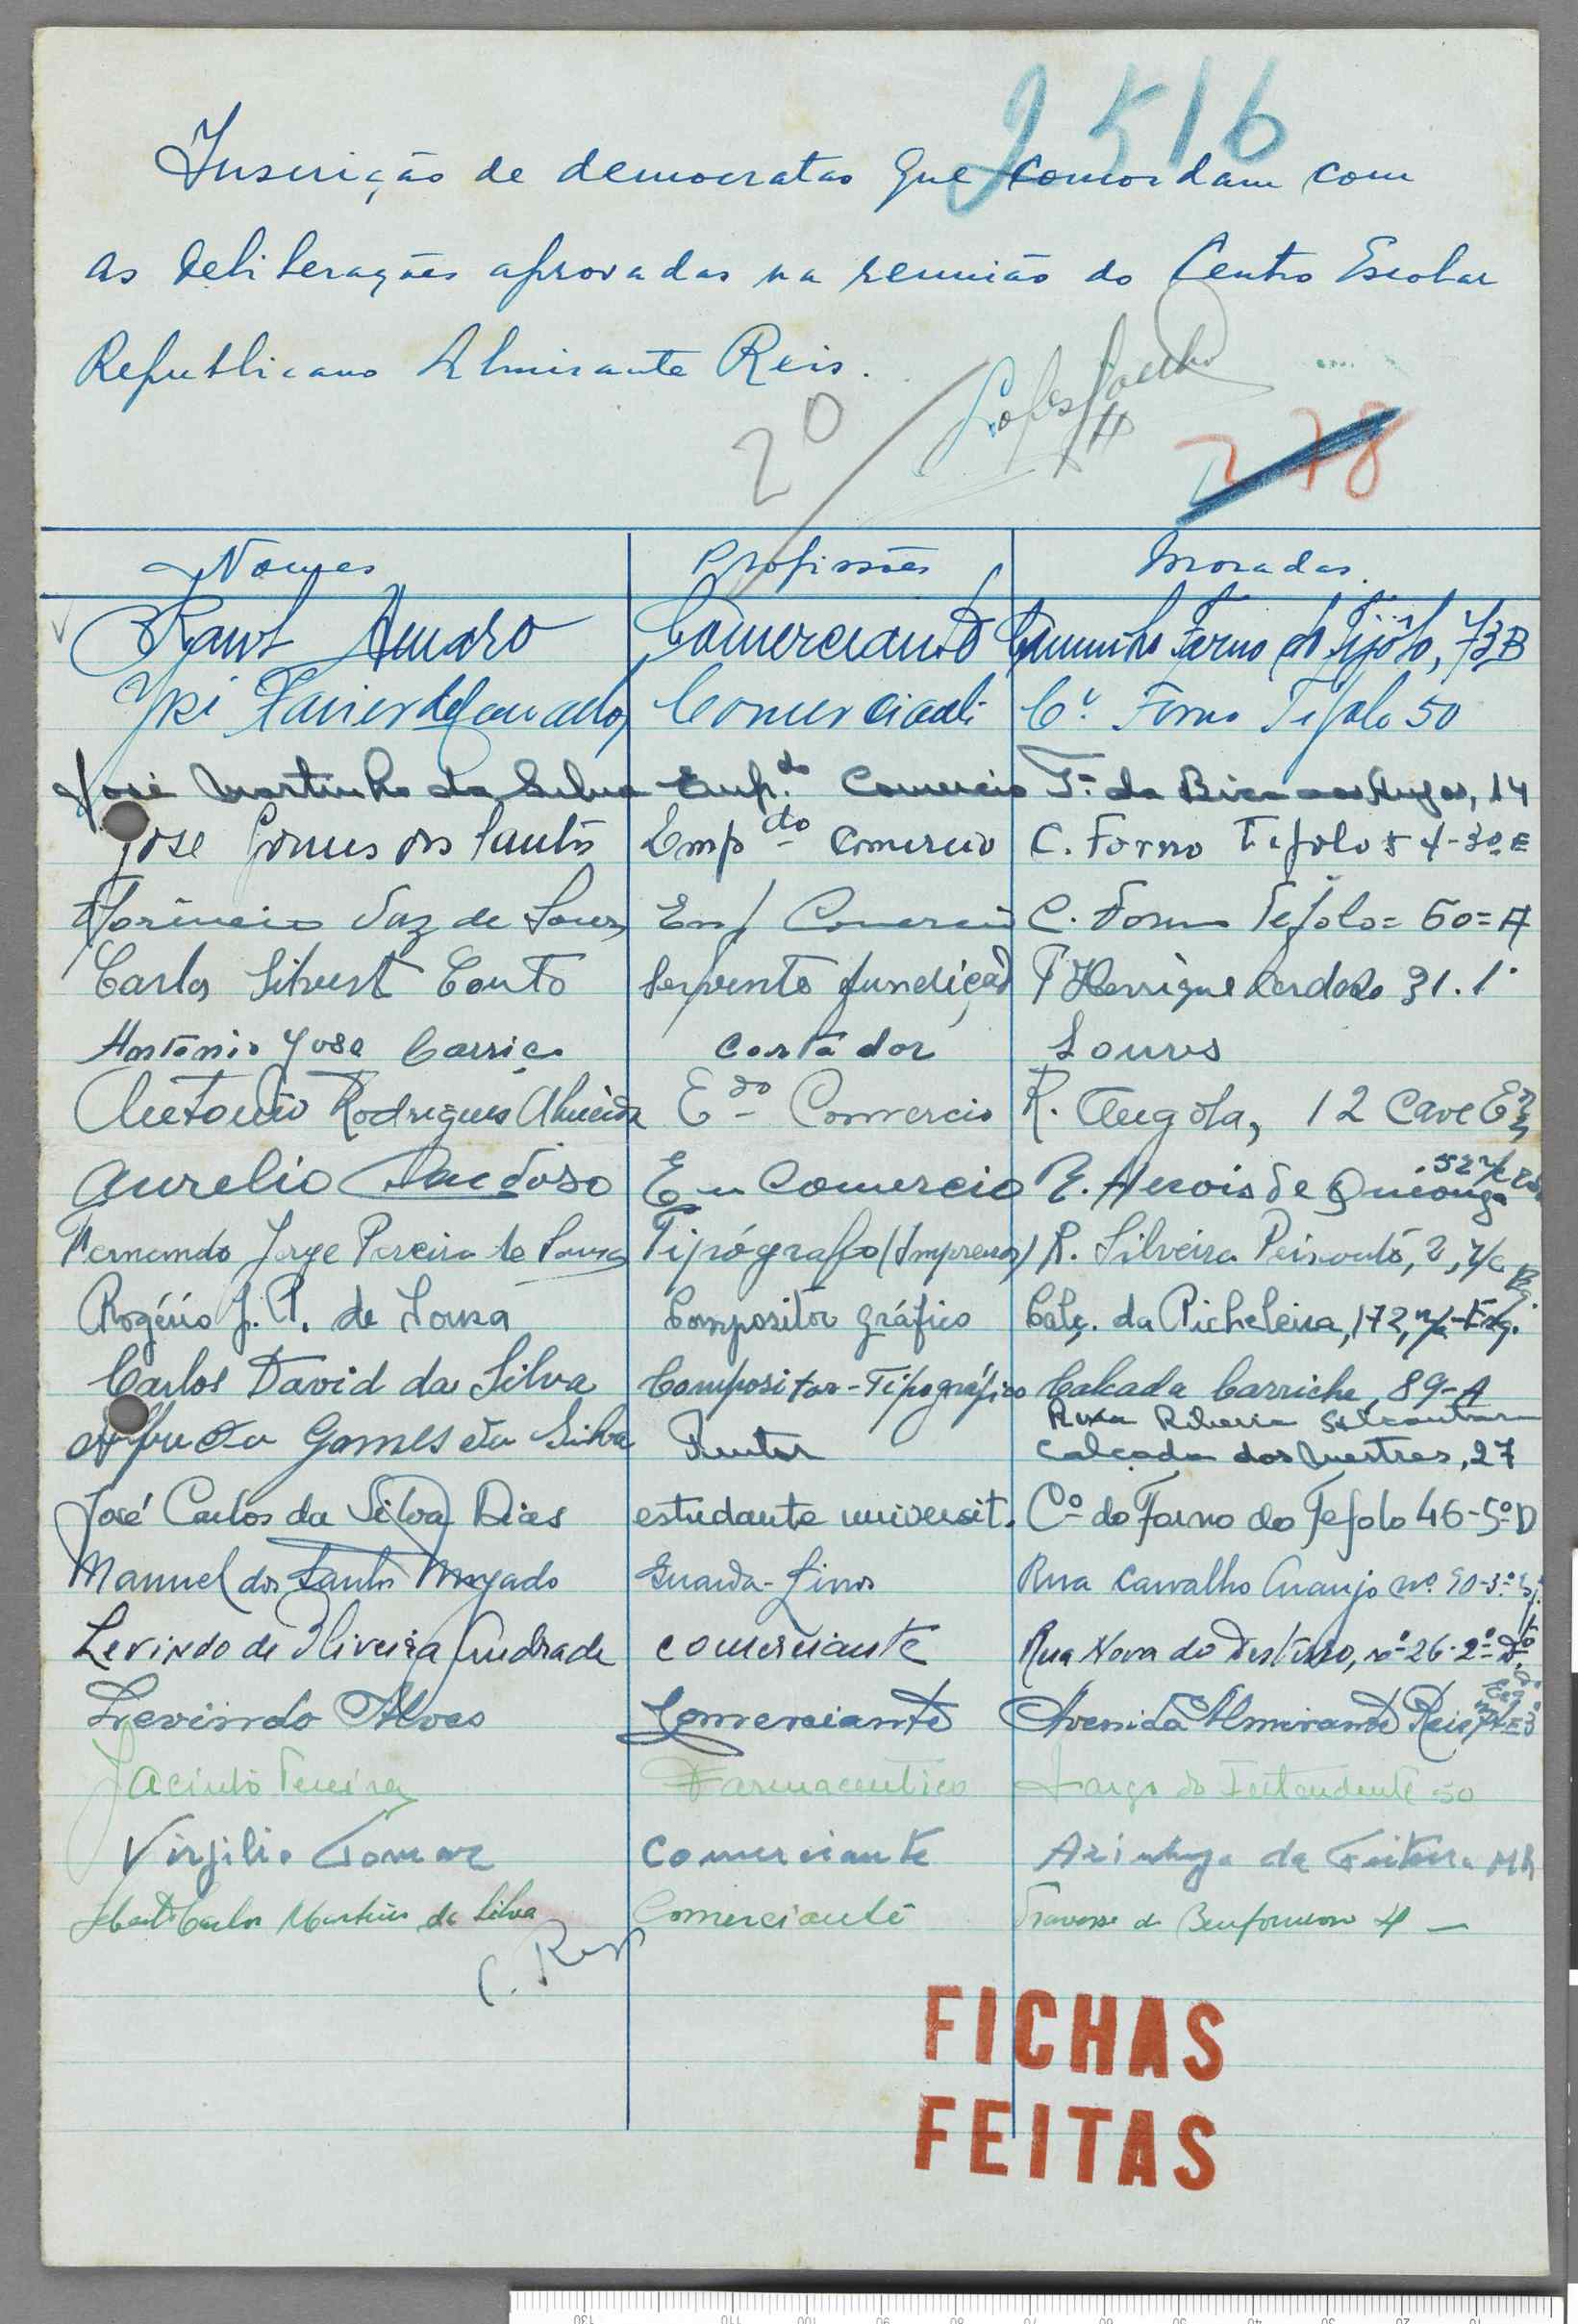 2516
Inscrição de democratas que concordam com
as deliberações aprovadas na reunião do Centro Escolar
Republicano Almirante Reis.
20
278
Nomes Profissões Moradas.
Raul Amaro Comerciante Caminho Forno do Tijôlo, 73B
Comerciante C. Forno Tijolo 50
José Martinho da Silva Emp.do Comercio T. da Bica aos Anjos, 14
Jose Gomes dos Santos Emp do Comercio C. Forno Tejolo 54-3º E
Vaz de Sousa Emp Comercio C. Forno Tejolo = 60 = A
Carlos Silvest Couto Servente fundição T Henrique Cardoso 31. 1º
António José Carriço Cortador Loures
Antonio Rodrigues Almeida E do Comercio R. Angola, 12 Cave
Aurelio Cardoso Em Comercio R. Herois de Quionga 52 r/c
Fernando Jorge Pereira de Sousa Tipógrafo (Impressor) R. Silveira Peixouto, 2, r/c
Rogério J. P. de Sousa Compositor gráfico Calç. da Picheleira, 172, r/c-Esq.
Carlos David da Silva Compositor-Tipográfico Calcada Carriche, 89-A
Gomes da Silva Pintor Calcada dos Mestres, 27
José Carlos da Silva Dias estudante universit. Cº do Forno do Tejolo 46-5º D
Manuel dos Santos Guarda-Livros Rua Carvalho Araujo nº. 90-3º
Levindo de Oliveira Andrade comerciante Rua Nova do Desterro, nº 26-2º Dto
Levindo Alves Comerciante Avenida Almirante Reis
Jacinto Farmaceutico Largo do Intendente 50
Virgilio Tomaz Comerciante Azinhaga da
Carlos Martins da Silva Comerciante Travessa do Benformoso 4
FICHAS
FEITAS